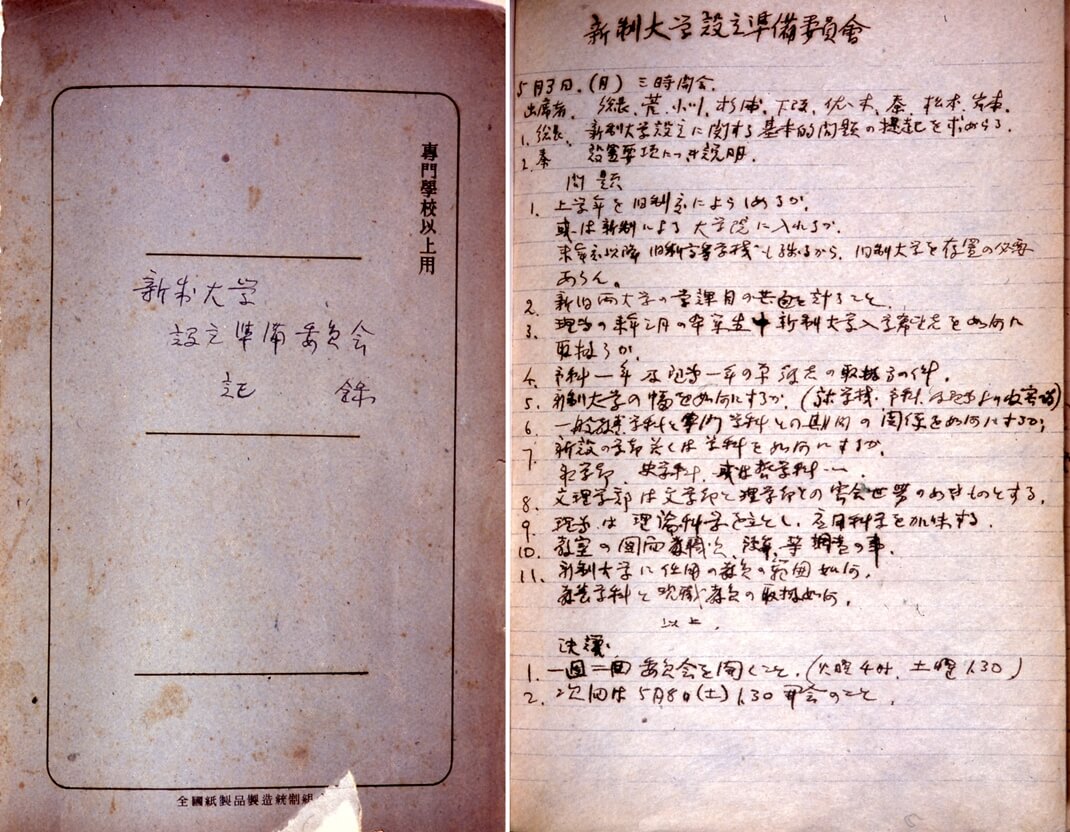 專門學校以上用
新制大学
設立準備委員会
記 録
全國紙製品製造統制組
新制大学設立準備委員會
5月3日.(月) 三時開会.
出席者. 総長、荒、小川、杉浦、下阪、佐々木、秦、松本、岩本.
1. 総長. 新制大学設立に関する基本的問題の提起を求めらる.
2. 秦 設置要項につき説明.
問題
1. 上学年を旧制度によらしめるか.
或は新制による大学院に入れるか.
旧制大学を存置の必要
あらん。
2. 新旧両大学の学課目の共通を計ること
3. 理学の来年三月の卒業生中新制大学入学希望者を如何に
取扱うか.
4. 予科一年及理学一年の取扱ひの件.
5. 新制大学の幅を如何にするか.
6. 一般教養学科と専門学科との期間の関係を如何にするか;
7. 新設の学部若しくは学科を如何にするか.
史学科、或は哲学科…
8. 文理学部は文学部と理学部との
ものとする.
9. 理学は理論科学を主とし、應用科学を加味する.
10. 教室の図面、教職員、等調査の事.
11. 新制大学に任用の教員の範囲如何.
教養学科と現職教員の取扱如何.
以上.
決議.
1. 一週二回委員会を開くこと.(火曜4時、土曜1.30)
2. 次回は5月8日(土)1.30開会のこと.